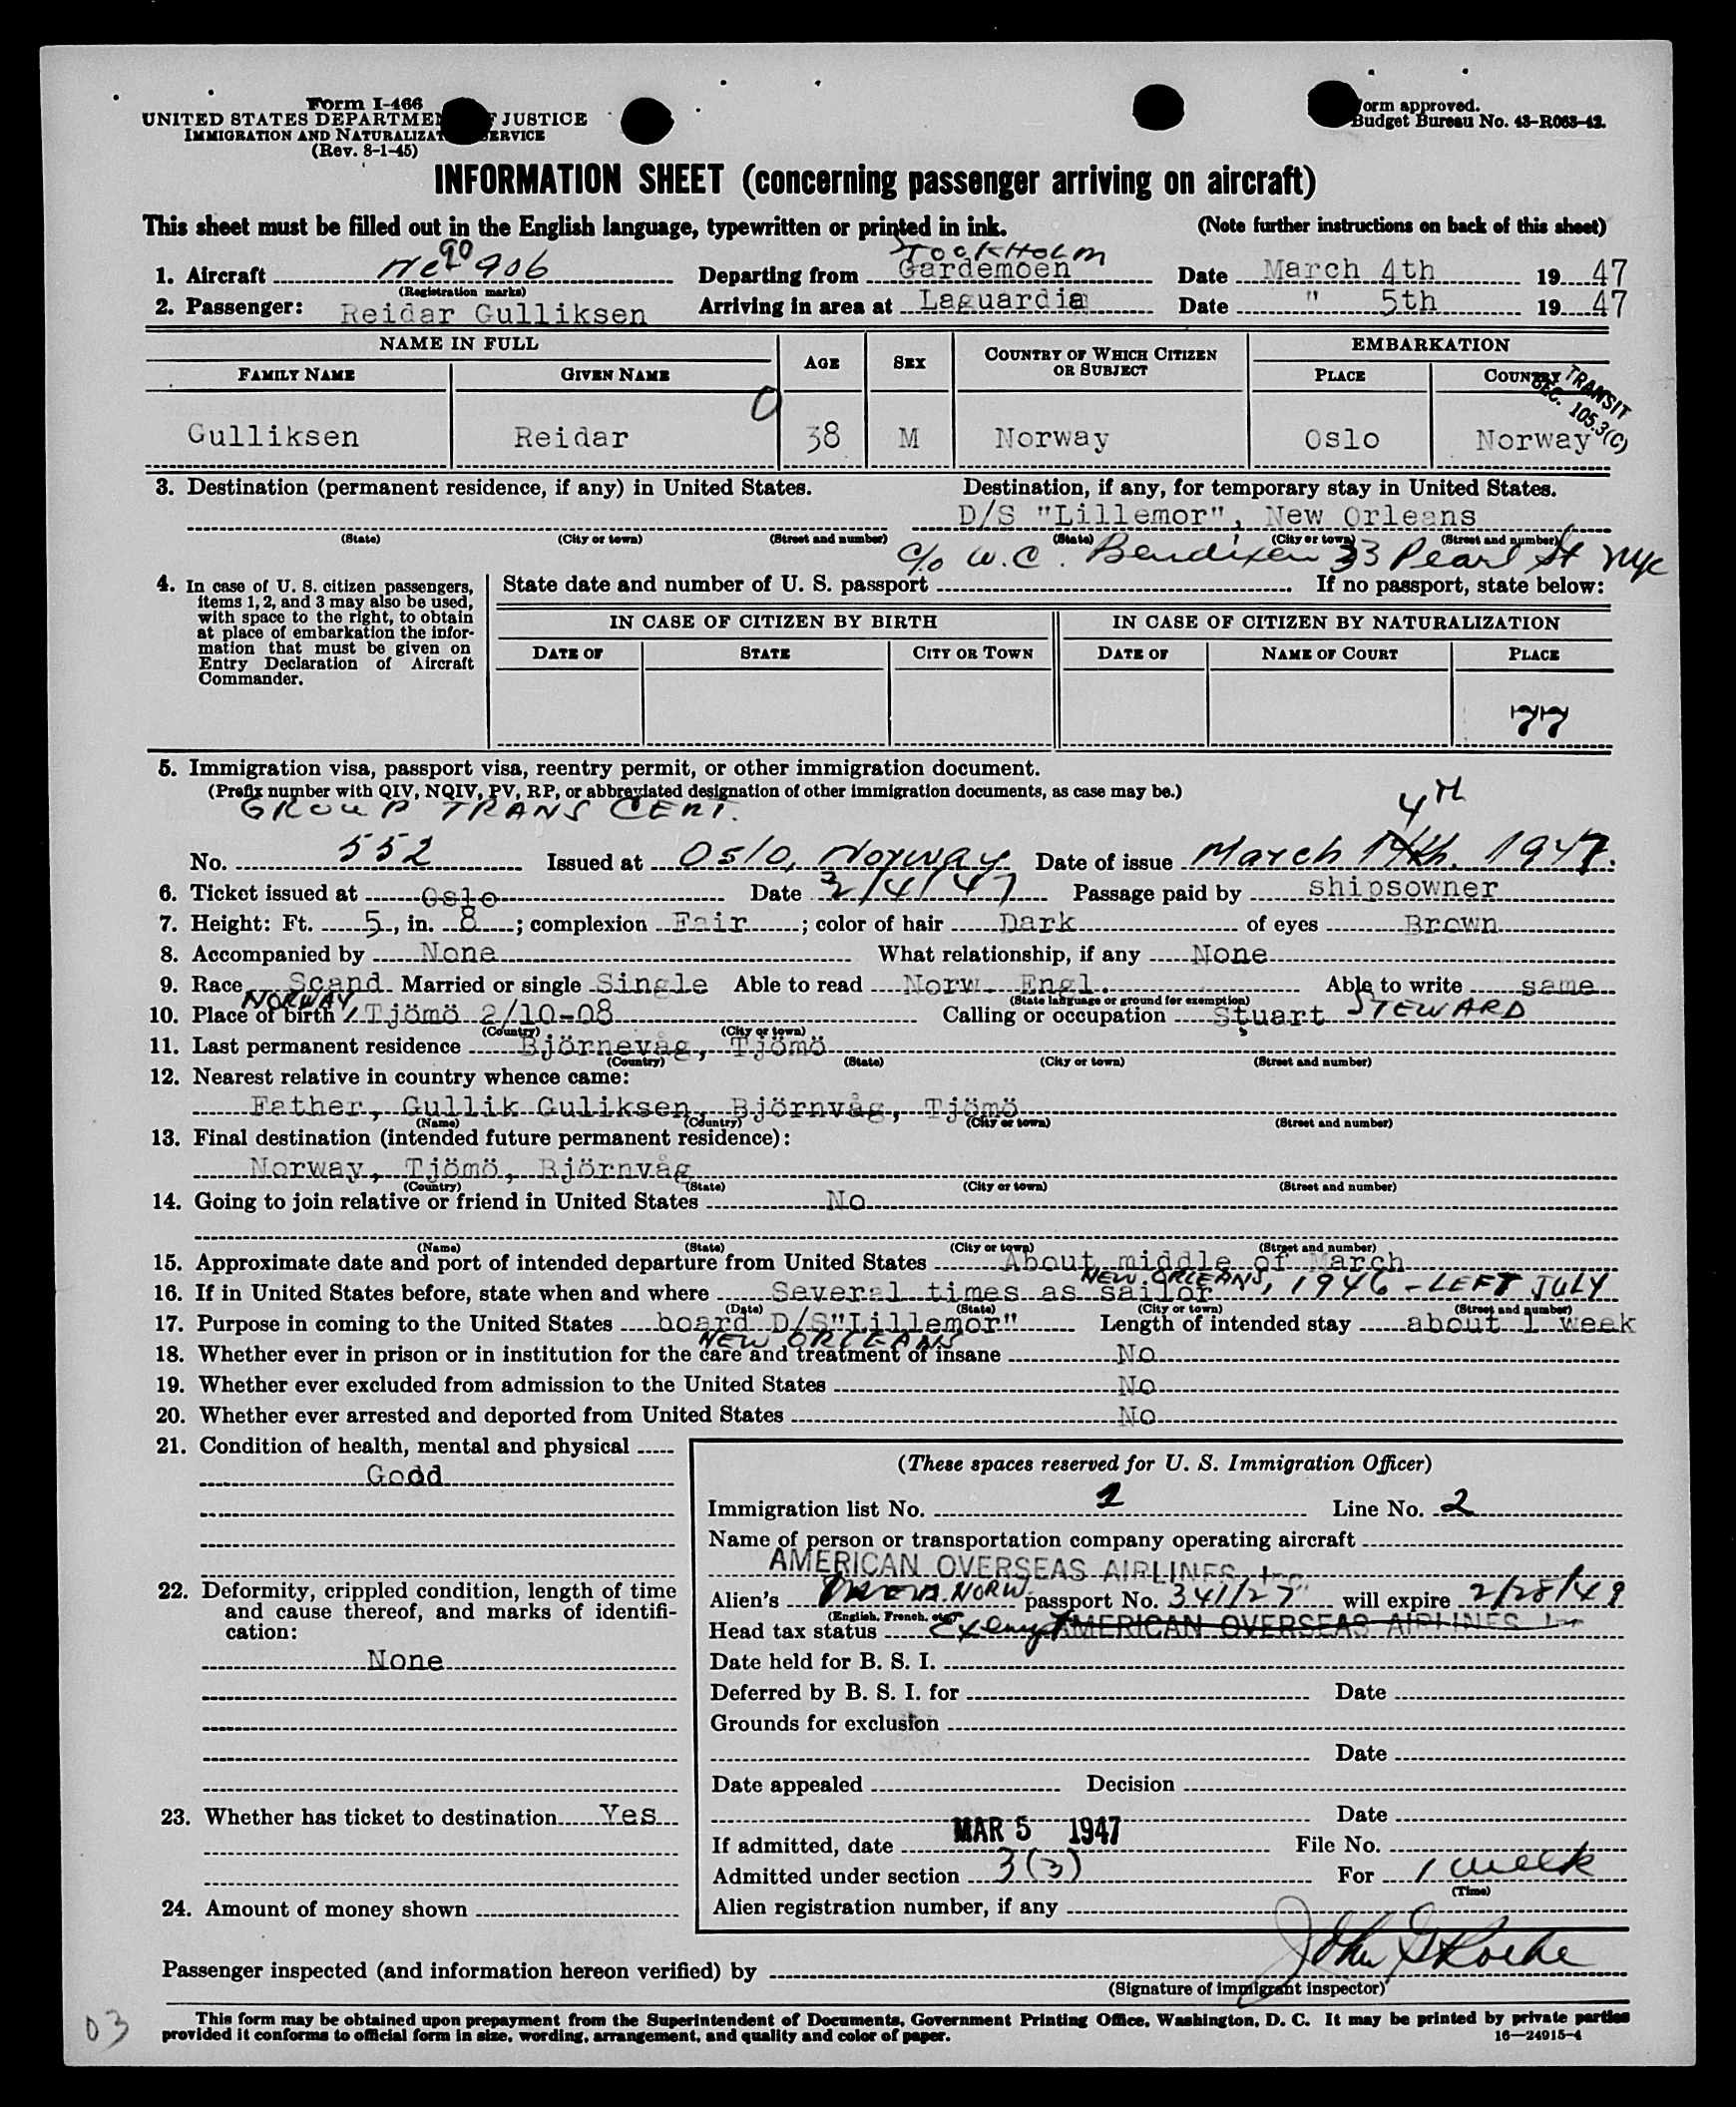 Form I-466
UNITED STATES DEPARTMENT OF JUSTICE
IMMIGRATION AND NATURALIZATION SERVICE
(Rev. 8-1-45)
Form approved.
Budget Bureau No. 43-R063-42.
INFORMATION SHEET (concerning passenger arriving on aircraft)
This sheet must be filled out in the English language, typewritten or printed in ink. (Note further instructions on back of this sheet)
90 STOCKHOLM
1. Aircraft 906 Departing from Gardemoen Date March 4th 1947
(Registration marks)
2. Passenger: Reidar Gulliksen Arriving in area at Laguardia Date " 5th 1947
NAME IN FULL AGE SEX COUNTRY OF WHICH CITIZEN OR SUBJECT EMBARKATION
FAMILY NAME GIVEN NAME PLACE COUNTRY
TRANSIT
SEC. 105.3(C)
0
Gulliksen Reidar 38 M Norway Oslo Norway
3. Destination (permanent residence, if any) in United States. Destination, if any, for temporary stay in United States.
D/S "Lillemor", New Orleans
(State) (City or town) (Street and number) (State) (City or town) (Street and number)
c/o W.C. Bendixen 33 Pearl St NYC
4. In case of U. S. citizen passengers, items 1, 2, and 3 may also be used, with space to the right, to obtain at place of embarkation the information that must be given on Entry Declaration of Aircraft Commander.
State date and number of U. S. passport . If no passport, state below:
IN CASE OF CITIZEN BY BIRTH IN CASE OF CITIZEN BY NATURALIZATION
DATE OF STATE CITY OR TOWN DATE OF NAME OF COURT PLACE
77
5. Immigration visa, passport visa, reentry permit, or other immigration document.
(Prefix number with QIV, NQIV, PV, RP, or abbreviated designation of other immigration documents, as case may be.)
GROUP TRANS CERT. 4TH
No. 552 Issued at Oslo, Norway Date of issue March 14th. 1947.
6. Ticket issued at Oslo Date 3/4/47 Passage paid by shipsowner
7. Height: Ft. 5, in. 8; complexion Fair; color of hair Dark of eyes Brown
8. Accompanied by None What relationship, if any None
9. Race Scand Married or single Single Able to read Norw. Engl. Able to write same
(State language or ground for exemption)
NORWAY
10. Place of birth Tjömö 2/10-08 Calling or occupation Stuart STEWARD
(Country) (City or town)
11. Last permanent residence Björnevåg, Tjömö
(Country) (State) (City or town) (Street and number)
12. Nearest relative in country whence came:
Father, Gullik Guliksen, Björnvåg, Tjömö
(Name) (Country) (City or town) (Street and number)
13. Final destination (intended future permanent residence):
Norway, Tjömö, Björnvåg
(Country) (State) (City or town) (Street and number)
14. Going to join relative or friend in United States No
(Name) (State) (City or town) (Street and number)
15. Approximate date and port of intended departure from United States About middle of March
16. If in United States before, state when and where Several times as sailor NEW ORLEANS, 1946 - LEFT JULY
(Date) (State) (City or town) (Street and number)
17. Purpose in coming to the United States board D/S"Lillemor" Length of intended stay about 1 week
NEW ORLEANS
18. Whether ever in prison or in institution for the care and treatment of insane No
19. Whether ever excluded from admission to the United States No
20. Whether ever arrested and deported from United States No
21. Condition of health, mental and physical
Godd
22. Deformity, crippled condition, length of time and cause thereof, and marks of identification:
None
23. Whether has ticket to destination Yes
24. Amount of money shown
(These spaces reserved for U. S. Immigration Officer)
Immigration list No. 1 Line No. 2
Name of person or transportation company operating aircraft
AMERICAN OVERSEAS AIRLINES Inc
Alien's NORW. passport No. 341/27 will expire 2/28/49
(English, French, etc.)
Head tax status Exempt AMERICAN OVERSEAS AIRLINES Inc
Date held for B. S. I.
Deferred by B. S. I. for Date
Grounds for exclusion
Date
Date appealed Decision
Date
If admitted, date MAR 5 1947 File No.
Admitted under section 3(3) For 1 week
(Time)
Alien registration number, if any
Passenger inspected (and information hereon verified) by
(Signature of immigrant inspector)
This form may be obtained upon prepayment from the Superintendent of Documents, Government Printing Office, Washington, D. C. It may be printed by private parties
provided it conforms to official form in size, wording, arrangement, and quality and color of paper.
16—24915-4
03